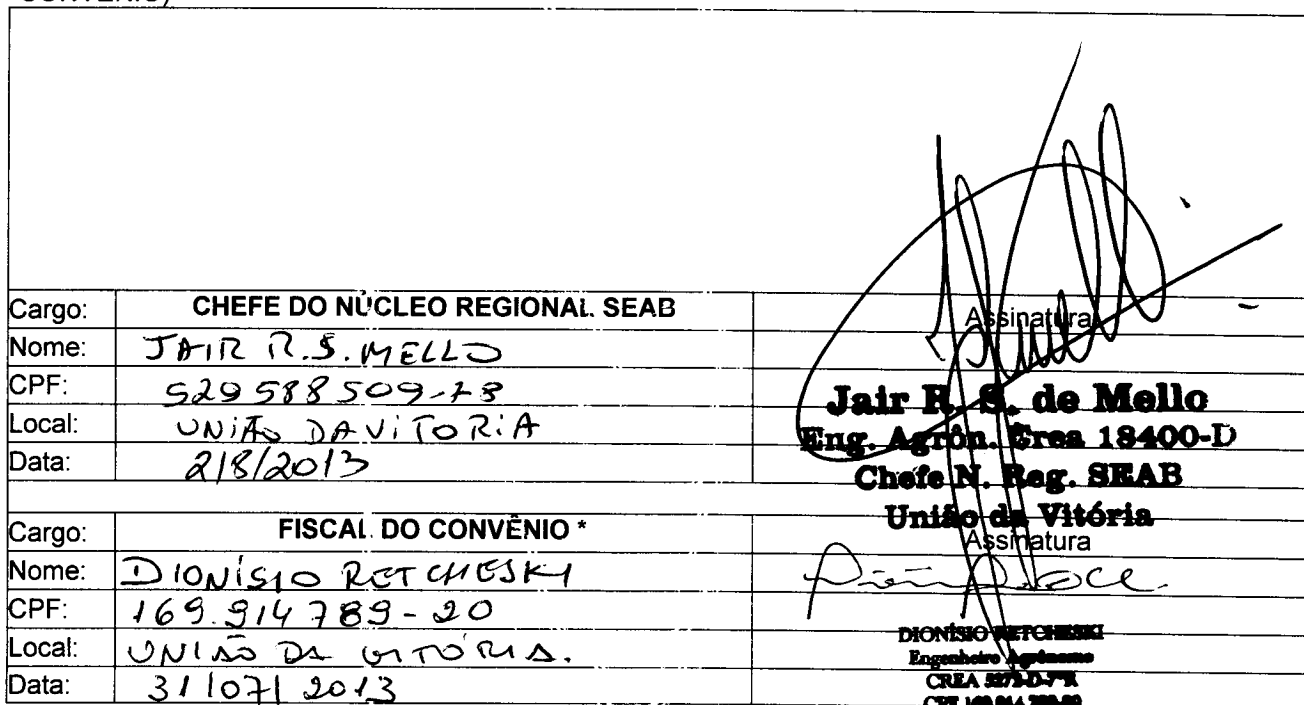 Cargo: CHEFE DO NÚCLEO REGIONAL SEAB Assinatura
Nome: JAIR R.S. MELLO
CPF: 529588509-
Local: UNIÃO DA VITORIA
Data: 2/8/2013
Jair R. S. de Mello
Eng. Agrôn. Crea 18400-D
Chefe N. Reg. SEAB
União da Vitória
Cargo: FISCAL DO CONVÊNIO * Assinatura
Nome: DIONÍSIO RETCHESKI
CPF: 169.914789-20
Local: UNIÃO DA VITÓRIA.
Data: 31/07/2013
DIONÍSIO RETCHESKI
Engenheiro Agrônomo
CREA